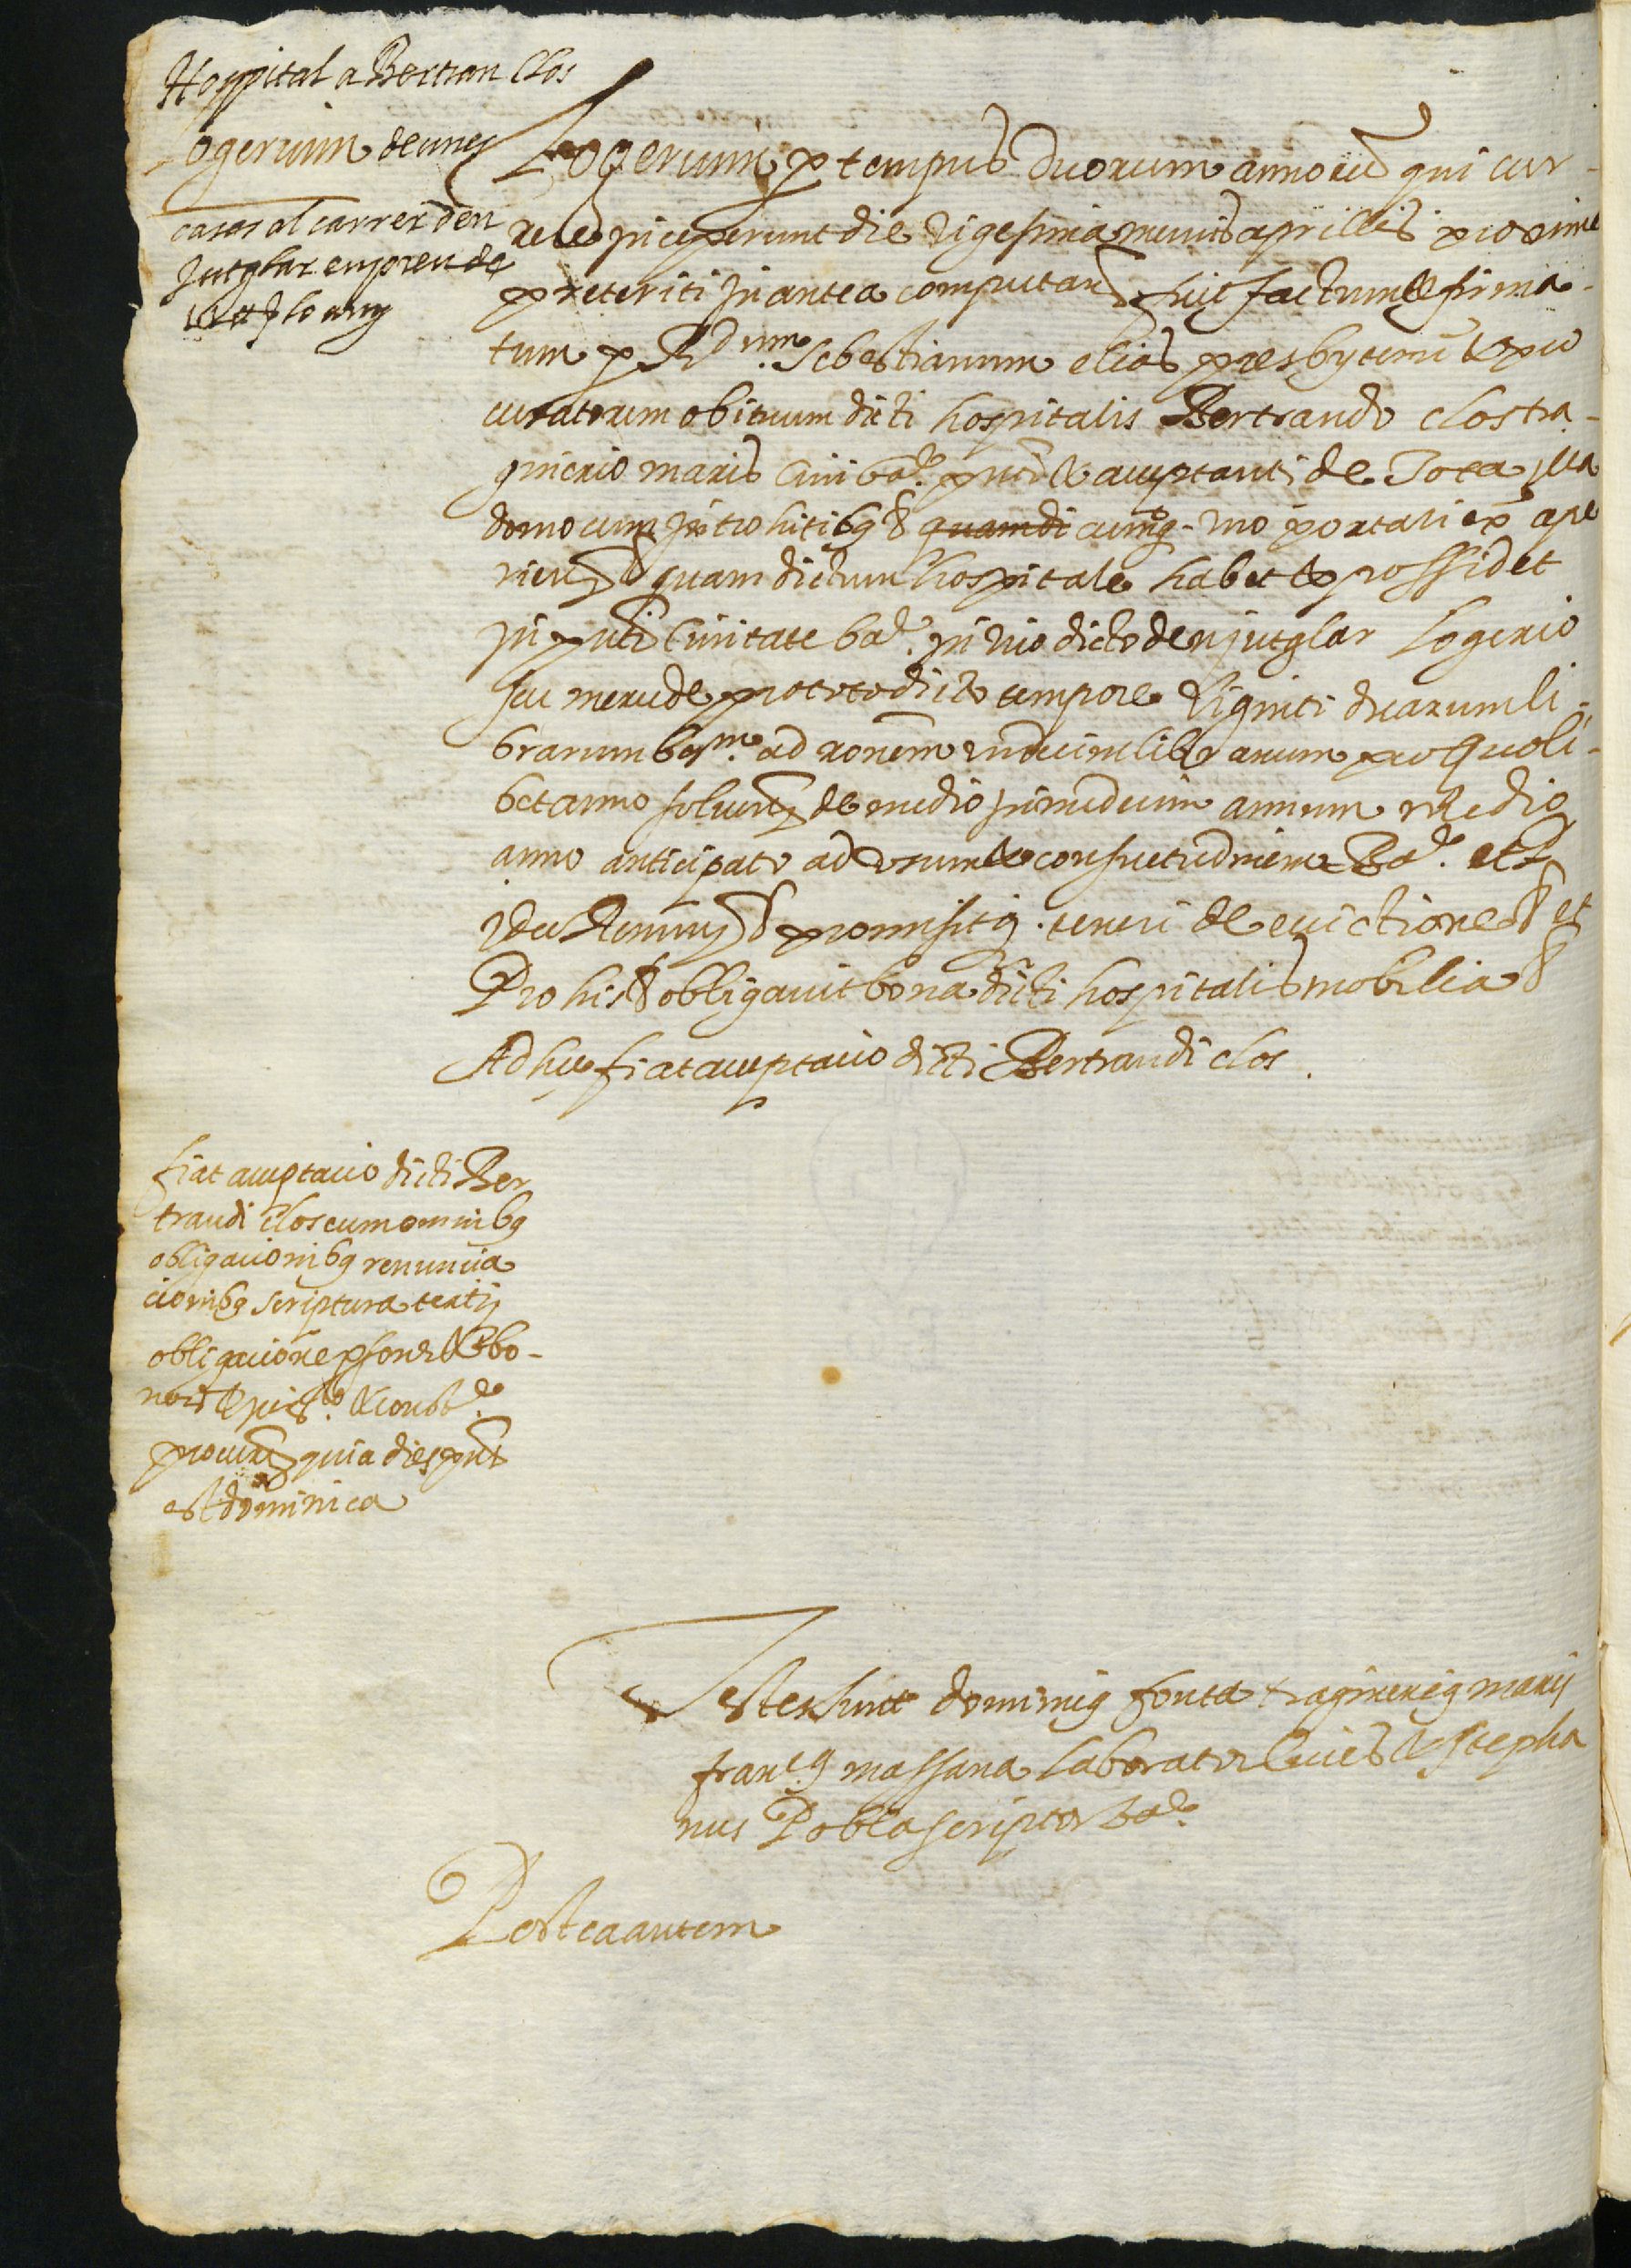 Hospital a Bertran Clos
Logerium de unes
cases al carrer den
Jutglar en poren de
lo any
Logerium p tempus duorum annorũ qui cur-
rere inceperunt die vigesima mensis aprillis proxime
preteriti in antea computand fuit factum & firma-
tum p Rdum. Sebestianum elias presbyterũ & pro
curatorem obituum dicti hospitalis Bertrando clos tra-
ginerio maris Civi bar. pnti & acceptanti de Tota illa
domo cum introhitibq & quamdi cumq. uno portali ex ape
rien quam dictum hospitale habet & possidet
in pnti Civitate bar. in vico dicto den jutglar logerio
seu mercede pro toto dicto tempore viginti duarum li-
brarum barm. ad ronem undecim librarum pro quoli-
bet anno solven de medio in medium annum medio
anno anticipato ad usum & consuetudinem Bar. et
promisitq. teneri de evictione & et
Pro his & obligavit bona dicti hospitalis mobilia &
Ad hec fiat acceptacio dicti Bertrandi clos.
fiat acceptacio dicti Ber
trandi clos cum omnibq
obligacionibq renuncia
cionibq scriptura tertii
obligacione psone & bo-
nor
procur quia dies pnt
est dominica
Testes sunt dominiq fonta traginerig maris
franc.q massana laborator Cives & stepha
nus Pobla scriptor bar.
Postea autem